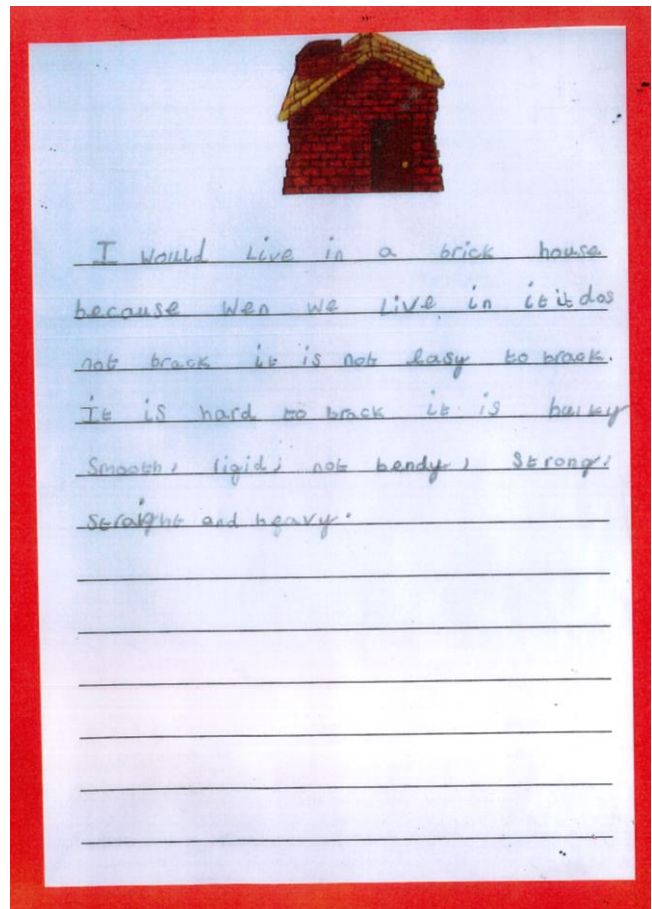 I would live in a brick house
because wen we live in it it dos
not brack it is not easy to brack.
It is hard to brack it is bulky
smooth, rigid, not bendy, strong,
straight and heavy.